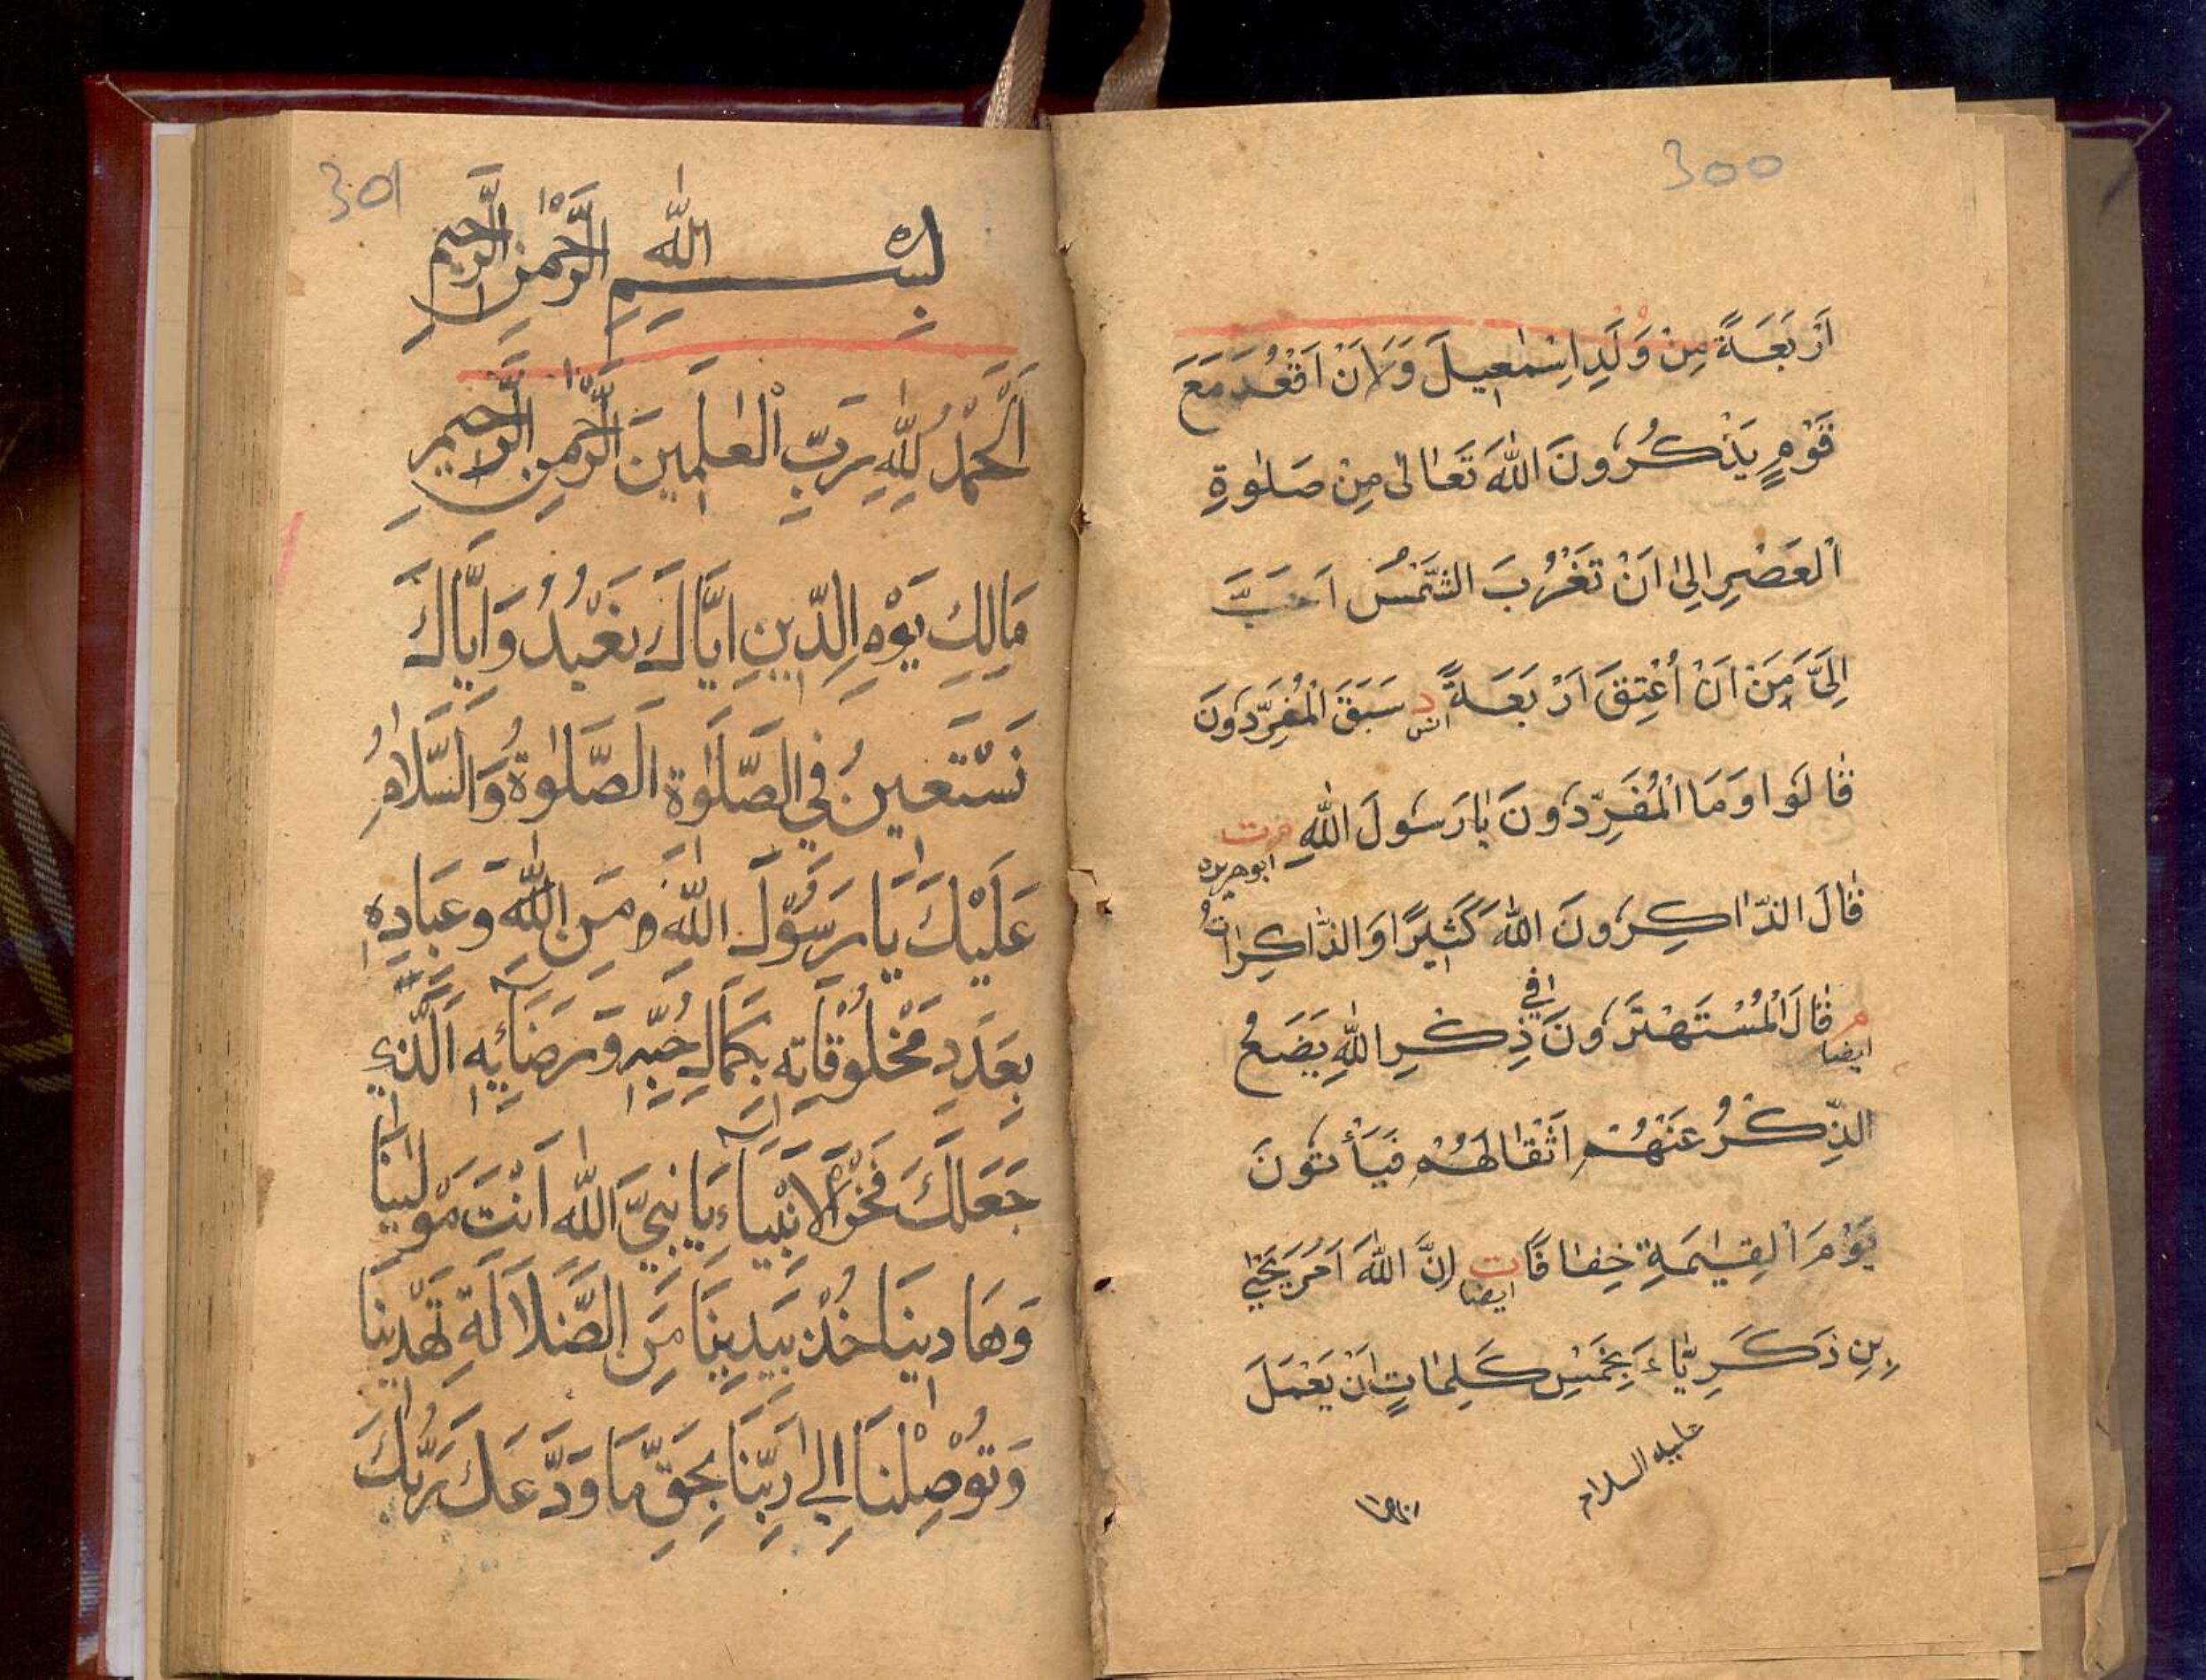 300
اَرْبَعَةً مِنْ وَلَدِ اِسْمٰعِيلَ وَلَاَنْ اَقْعُدَ مَعَ
قَوْمٍ يَذْكُرُونَ اللّٰهَ تَعَالٰى مِنْ صَلٰوةِ
الْعَصْرِ اِلٰى اَنْ تَغْرُبَ الشَّمْسُ اَحَبَّ
اِلَىَّ مِنَ اَنْ اُعْتِقَ اَرْبَعَةً د انس سَبَقَ الْمُفَرِّدُونَ
قَالُوا وَمَا الْمُفَرِّدُونَ يَا رَسُولَ اللّٰهِ مت ابوهريره
قَالَ الذَّاكِرُونَ اللّٰهَ كَثِيرًا وَالذَّاكِرَاتُ
م ايضا قَالَ الْمُسْتَهْتَرُونَ فِي ذِكْرِ اللّٰهِ يَضَعُ
الذِّكْرُ عَنْهُمْ اَثْقَالَهُمْ فَيَأْتُونَ
يَوْمَ الْقِيٰمَةِ خِفَافًا ت ايضا اِنَّ اللّٰهَ اَمَرَ يَحْيٰى
بْنِ ذَكَرِيَّاءَ بِخَمْسِ كَلِمَاتٍ اَنْ يَعْمَلَ
عليه السلام
301
بِسْمِ اللّٰهِ الرَّحْمٰنِ الرَّحِيمِ
اَلْحَمْدُ لِلّٰهِ رَبِّ الْعٰلَمِينَ الرَّحْمٰنِ الرَّحِيمِ
مَالِكِ يَوْمِ الدِّينِ اِيَّاكَ نَعْبُدُ وَاِيَّاكَ
نَسْتَعِينُ فِي الصَّلٰوةِ اَلصَّلٰوةُ وَالسَّلَامُ
عَلَيْكَ يَا رَسُولَ اللّٰهِ مِنَ اللّٰهِ وَعِبَادِهِ
بِعَدَدِ مَخْلُوقَاتِهِ بِكَمَالِ حُبِّهِ وَرِضَائِهِ الَّذِي
جَعَلَكَ فَخْرَ الْاَنْبِيَاءِ يَا نَبِيَّ اللّٰهِ اَنْتَ مَوْلَينَا
وَهَادِينَا خُذْ بِيَدِينَا مِنَ الضَّلَالَةِ تَهْدِينَا
وَتُوْصِلْنَا اِلٰى رَبِّنَا بِحَقِّ مَا وَدَّعَكَ رَبُّكَ